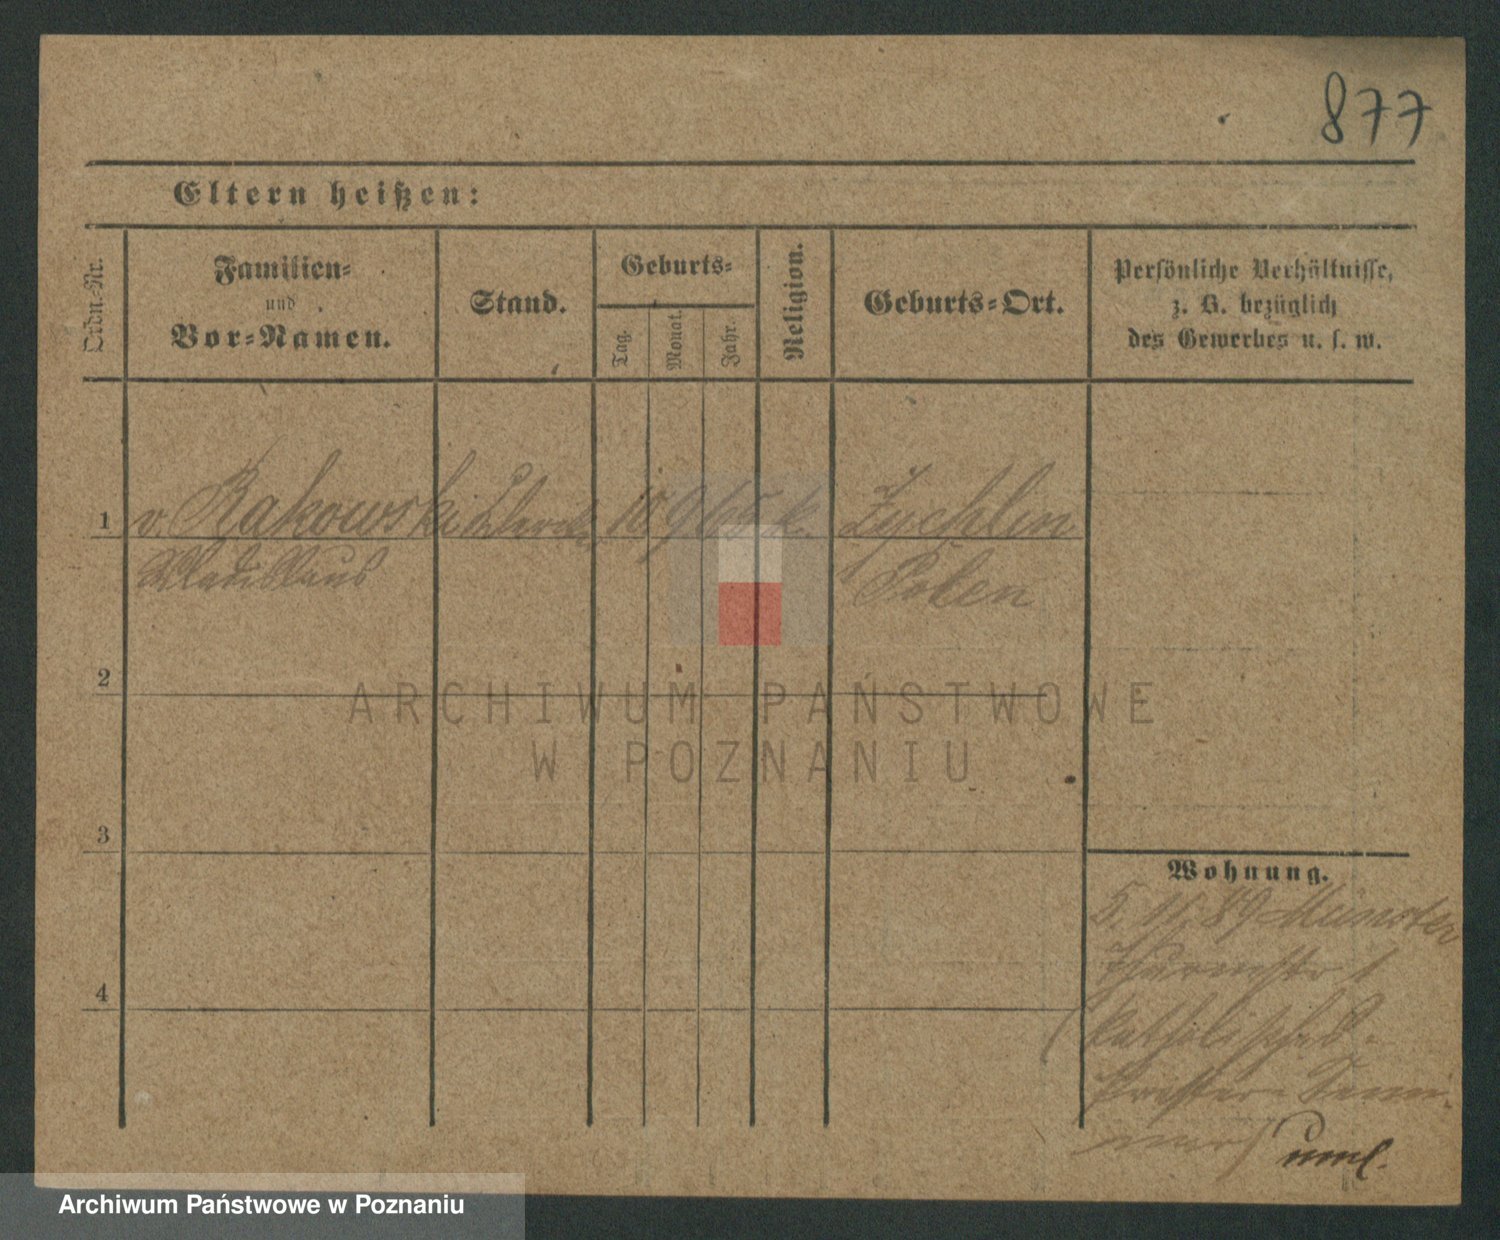 877
Eltern heißen:
Ordn.-Nr.
Familien-
und
Vor-Namen.
Stand.
Geburts-
Tag.
Monat.
Jahr.
Religion.
Geburts-Ort.
Persönliche Verhältnisse,
z. B. bezüglich
des Gewerbes u. s. w.
1 v. Rakowski 10 9 65 k. Zychlin
Wladislaus Polen
2
3
4
Wohnung.
5. 11. 89 Münster
1
(katholisches
Priester-Semi-
ARCHIWUM PAŃSTWOWE
W POZNANIU
Archiwum Państwowe w Poznaniu